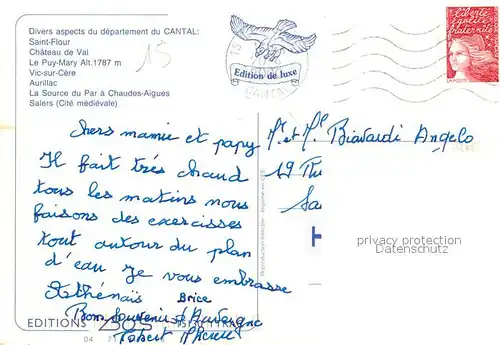 Divers aspects du département du CANTAL:
Saint-Flour
Château de Val
Le Puy-Mary Alt.1787 m
Vic-sur-Cère
Aurillac
La Source du Par à Chaudes-Aigues
Salers (Cité médiévale)
15
Edition de luxe
liberté
égalité
fraternité
LA POSTE
chers mamie et papy
Il fait trés chaud
tous les matins nous
faisons des exercisses
tout autour du plan
d'eau je vous embrasse
Athénaïs Brice
Bon Souvenir d'Auvergne
Mr et Me Biavardi Angelo
19 Ru
Sa
privacy protection
Datenschutz
EDITIONS
04